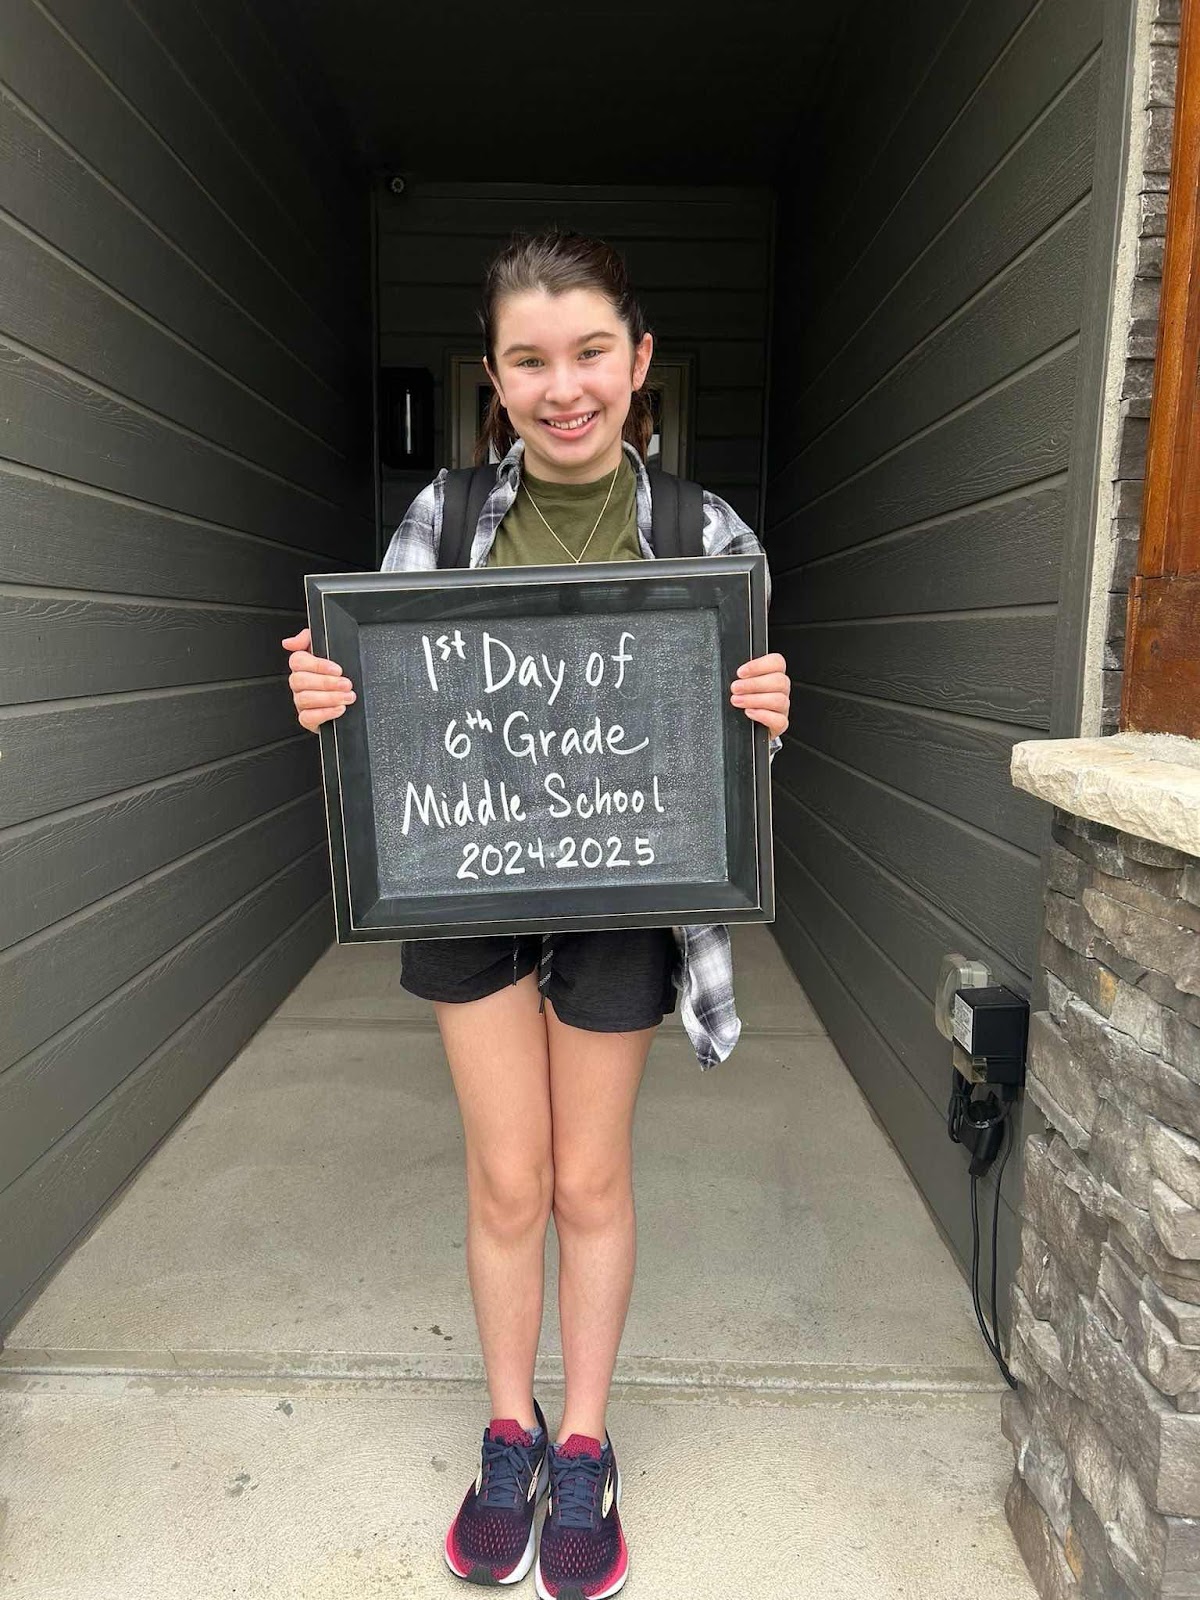 1st Day of
6th Grade
Middle School
2024·2025